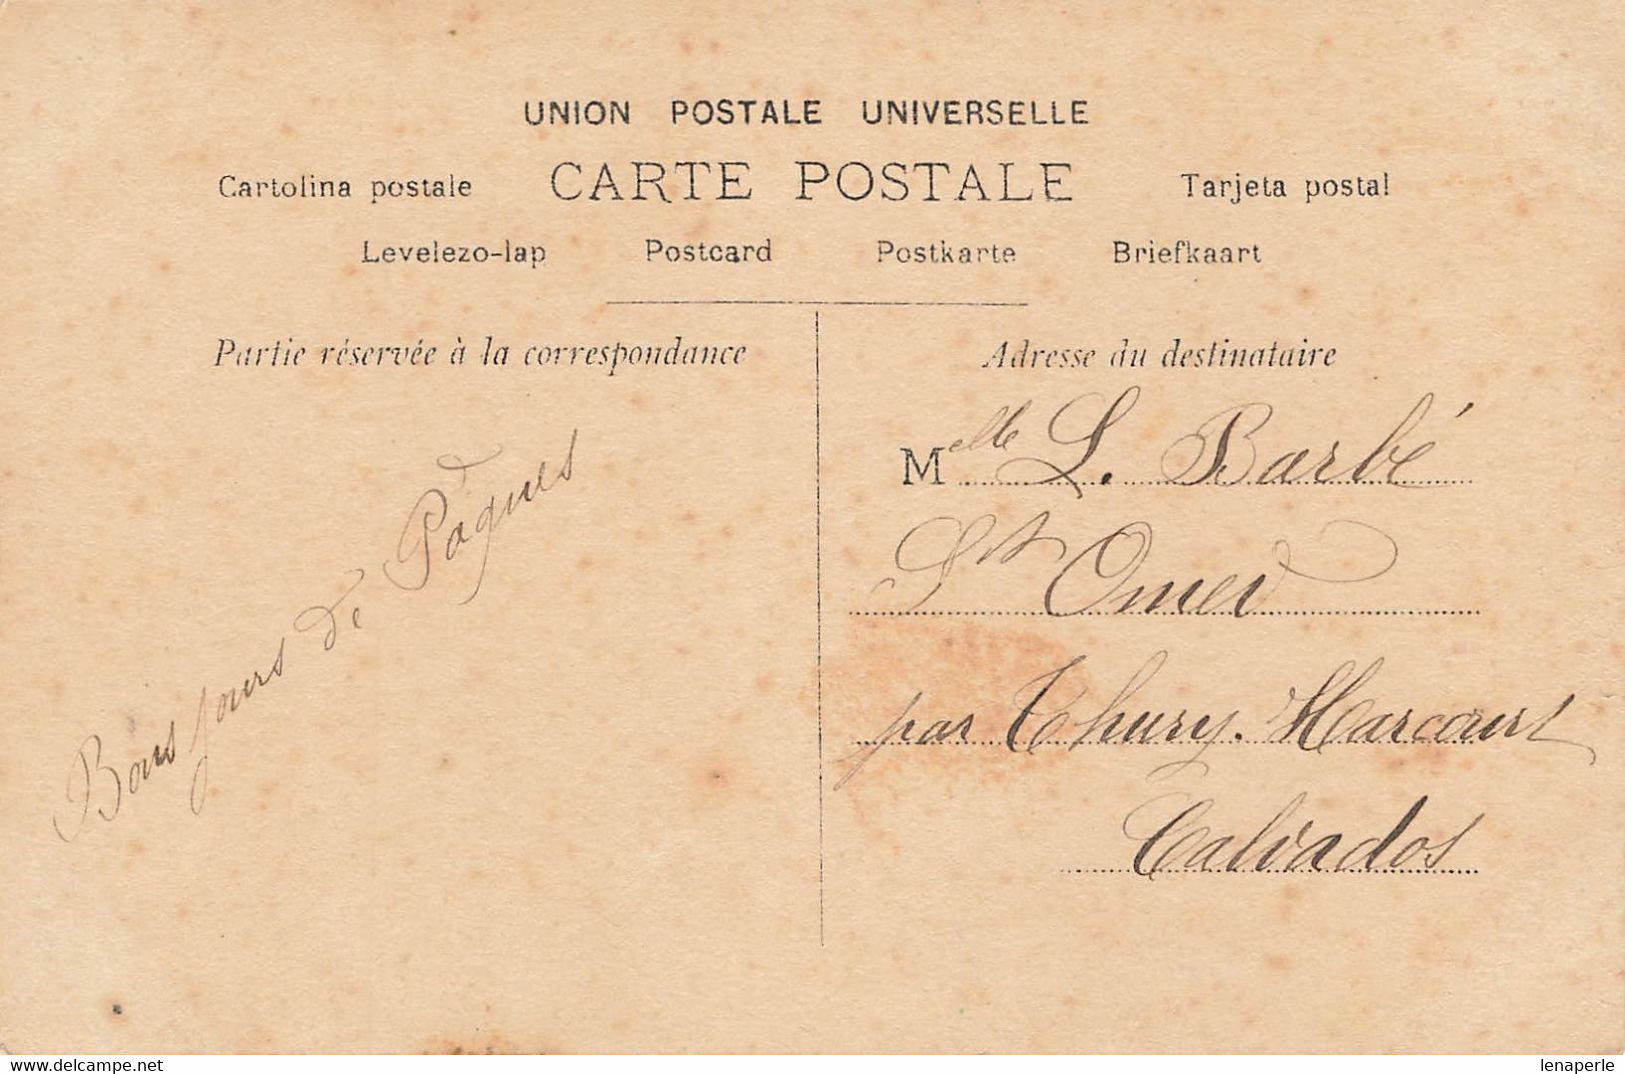 UNION POSTALE UNIVERSELLE
CARTE POSTALE
Cartolina postale
Tarjeta postal
Levelezo-lap Postcard Postkarte Briefkaart
Partie réservée à la correspondance
Bons jours de Pâques
Adresse du destinataire
Melle L. Barbé
St Omer
par Thury. Harcourt
Calvados
www.delcampe.net
lenaperle